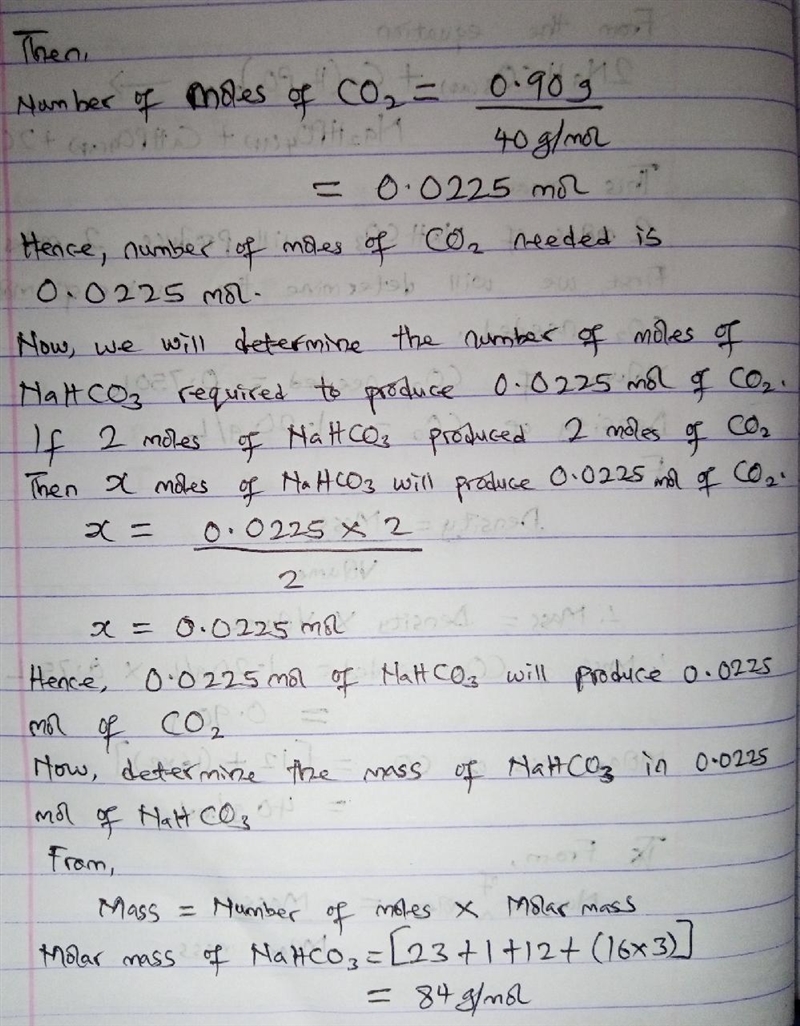 Then,
Number of moles of CO₂ = 0.90 g
40 g/mol
= 0.0225 mol
Hence, number of moles of CO₂ needed is
0.0225 mol.
Now, we will determine the number of moles of
NaHCO₃ required to produce 0.0225 mol of CO₂.
If 2 moles of NaHCO₃ produced 2 moles of CO₂
Then x moles of NaHCO₃ will produce 0.0225 mol of CO₂.
x = 0.0225 × 2
2
x = 0.0225 mol
Hence, 0.0225 mol of NaHCO₃ will produce 0.0225
mol of CO₂
Now, determine the mass of NaHCO₃ in 0.0225
mol of NaHCO₃
From,
Mass = Number of moles × Molar mass
Molar mass of NaHCO₃ = [23 + 1 + 12 + (16×3)]
= 84 g/mol